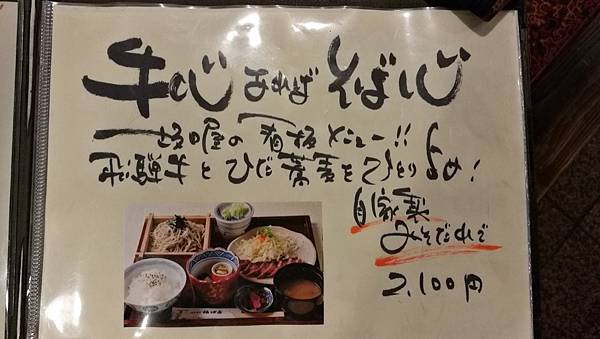 牛心あればそば心
坂口屋の看板メニュー!!
飛騨牛とひだ蕎麦をひとりじめ!
自家製
みそだれで
2,100円